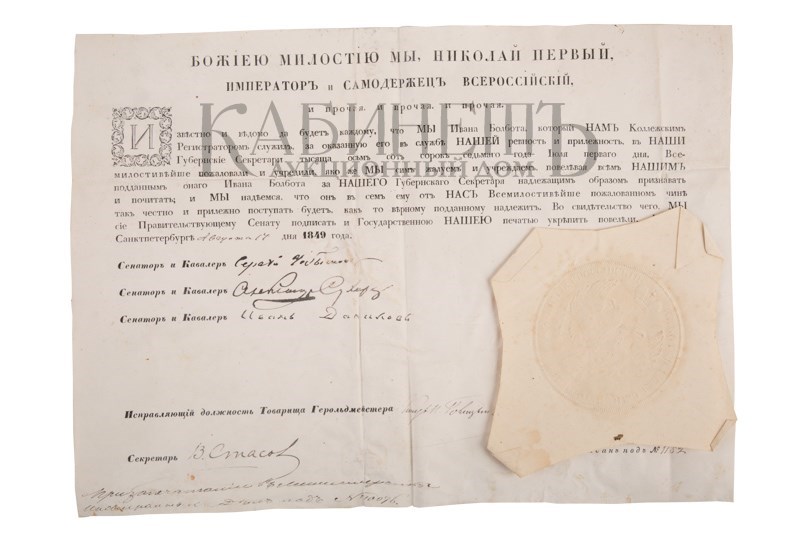 БОЖІЕЮ МИЛОСТІЮ МЫ, НИКОЛАЙ ПЕРВЫЙ,
ИМПЕРАТОРЪ и САМОДЕРЖЕЦЪ ВСЕРОССІЙСКІЙ,
и прочая, и прочая, и прочая.
КАБИНЕТЪ
АУКЦИОННЫЙ ДОМ
Извѣстно и вѣдомо да будетъ каждому, что МЫ Ивана Болбота, который НАМЪ Коллежскимъ
Регистраторомъ служилъ, за оказанную его въ службѣ НАШЕЙ ревность и прилежность, въ НАШИ
Губернскіе Секретари тысяща осьмъ сотъ сорокъ седьмаго года Іюля перваго дня, Все-
милостивѣйше пожаловали и учредили; яко же МЫ симъ жалуемъ и учреждаемъ, повелѣвая всѣмъ НАШИМЪ
подданнымъ онаго Ивана Болбота за НАШЕГО Губернскаго Секретаря надлежащимъ образомъ признавать
и почитать; и МЫ надѣемся, что онъ въ семъ ему отъ НАСЪ Всемилостивѣйше пожалованномъ чинѣ
такъ честно и прилежно поступать будетъ, какъ то вѣрному подданному надлежитъ. Во свидѣтельство чего, МЫ
сіе Правительствующему Сенату подписать и Государственною НАШЕЮ печатью укрѣпить повелѣли.
Санктпетербургѣ Августа 17 дня 1849 года.
Сенаторъ и Кавалеръ Сергѣй
Сенаторъ и Кавалеръ Александръ
Сенаторъ и Кавалеръ Иванъ Даниловъ
Исправляющій должность Товарища Герольдмейстера
Секретарь В. Стасовъ
подъ №
При запечатаніи въ Министерствѣ
Иностранныхъ Дѣлъ подъ №